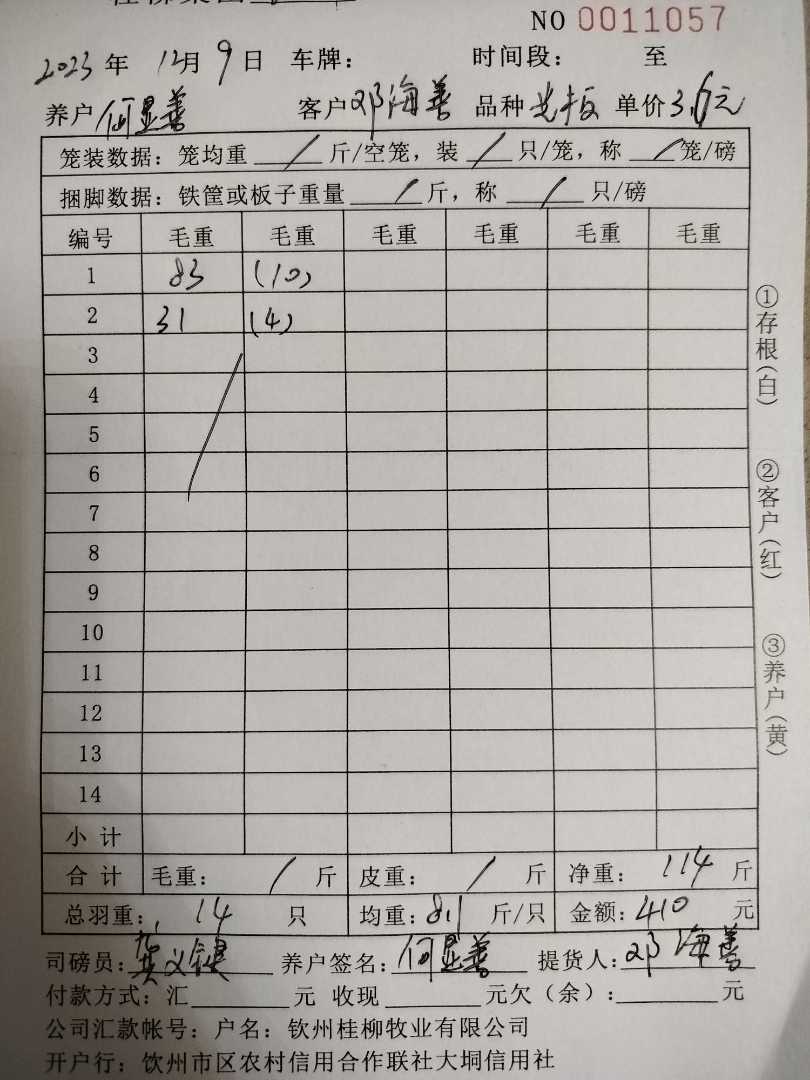 NO 0011057
2023 年 12月 9 日 车牌： 时间段： 至
养户 何显善 客户 邓海善 品种 光板 单价 3.6元
笼装数据：笼均重 / 斤/空笼，装 / 只/笼，称 / 笼/磅
捆脚数据：铁筐或板子重量 / 斤，称 / 只/磅
编号 毛重 毛重 毛重 毛重 毛重 毛重
1 83 (10)
2 31 (4)
3
4
5
6
7
8
9
10
11
12
13
14
小 计
合 计 毛重： / 斤 皮重： / 斤 净重： 114 斤
总羽重： 14 只 均重：8.1 斤/只 金额：410 元
司磅员： 养户签名：何显善 提货人：邓海善
付款方式：汇 元 收现 元欠（余）： 元
公司汇款帐号：户名：钦州桂柳牧业有限公司
开户行：饮州市区农村信用合作联社大垌信用社
①存根（白）
②客户（红）
③养户（黄）